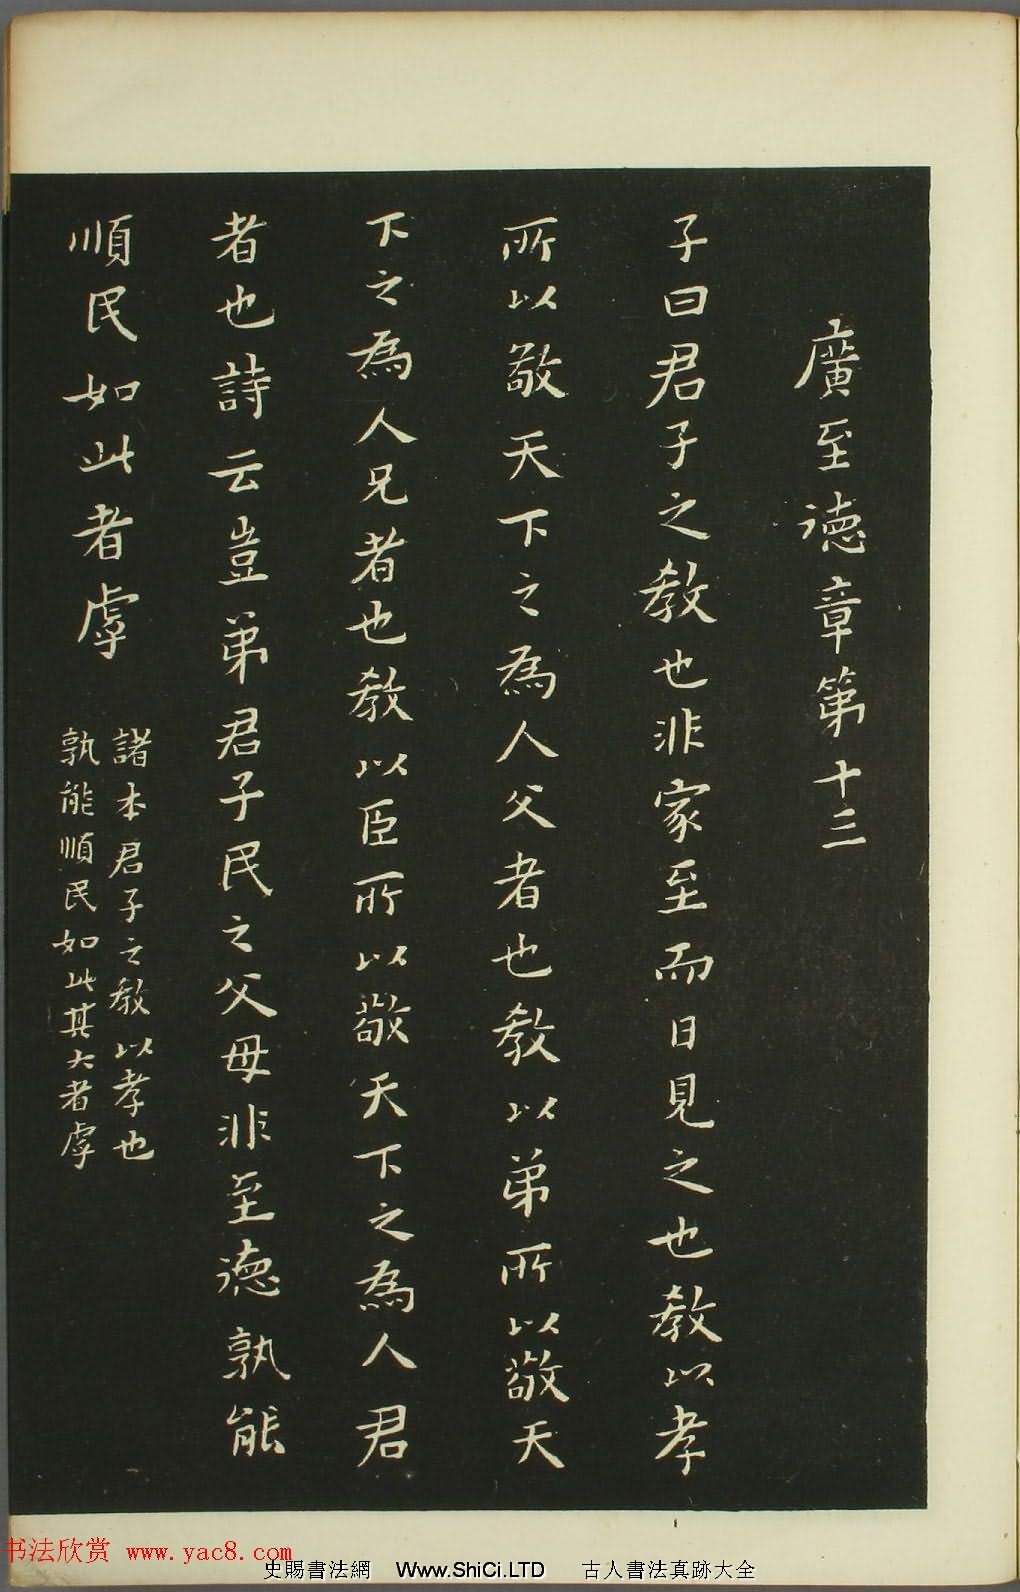 廣至德章第十三
子曰君子之教也非家至而日見之也教以孝
所以敬天下之為人父者也教以弟所以敬天
下之為人兄者也教以臣所以敬天下之為人君
者也詩云豈弟君子民之父母非至德孰能
順民如此者虖
諸本君子之教以孝也
孰能順民如此其大者虖
书法欣赏 www.yac8.com
史賜書法網 Www.ShiCi.LTD 古人書法真跡大全